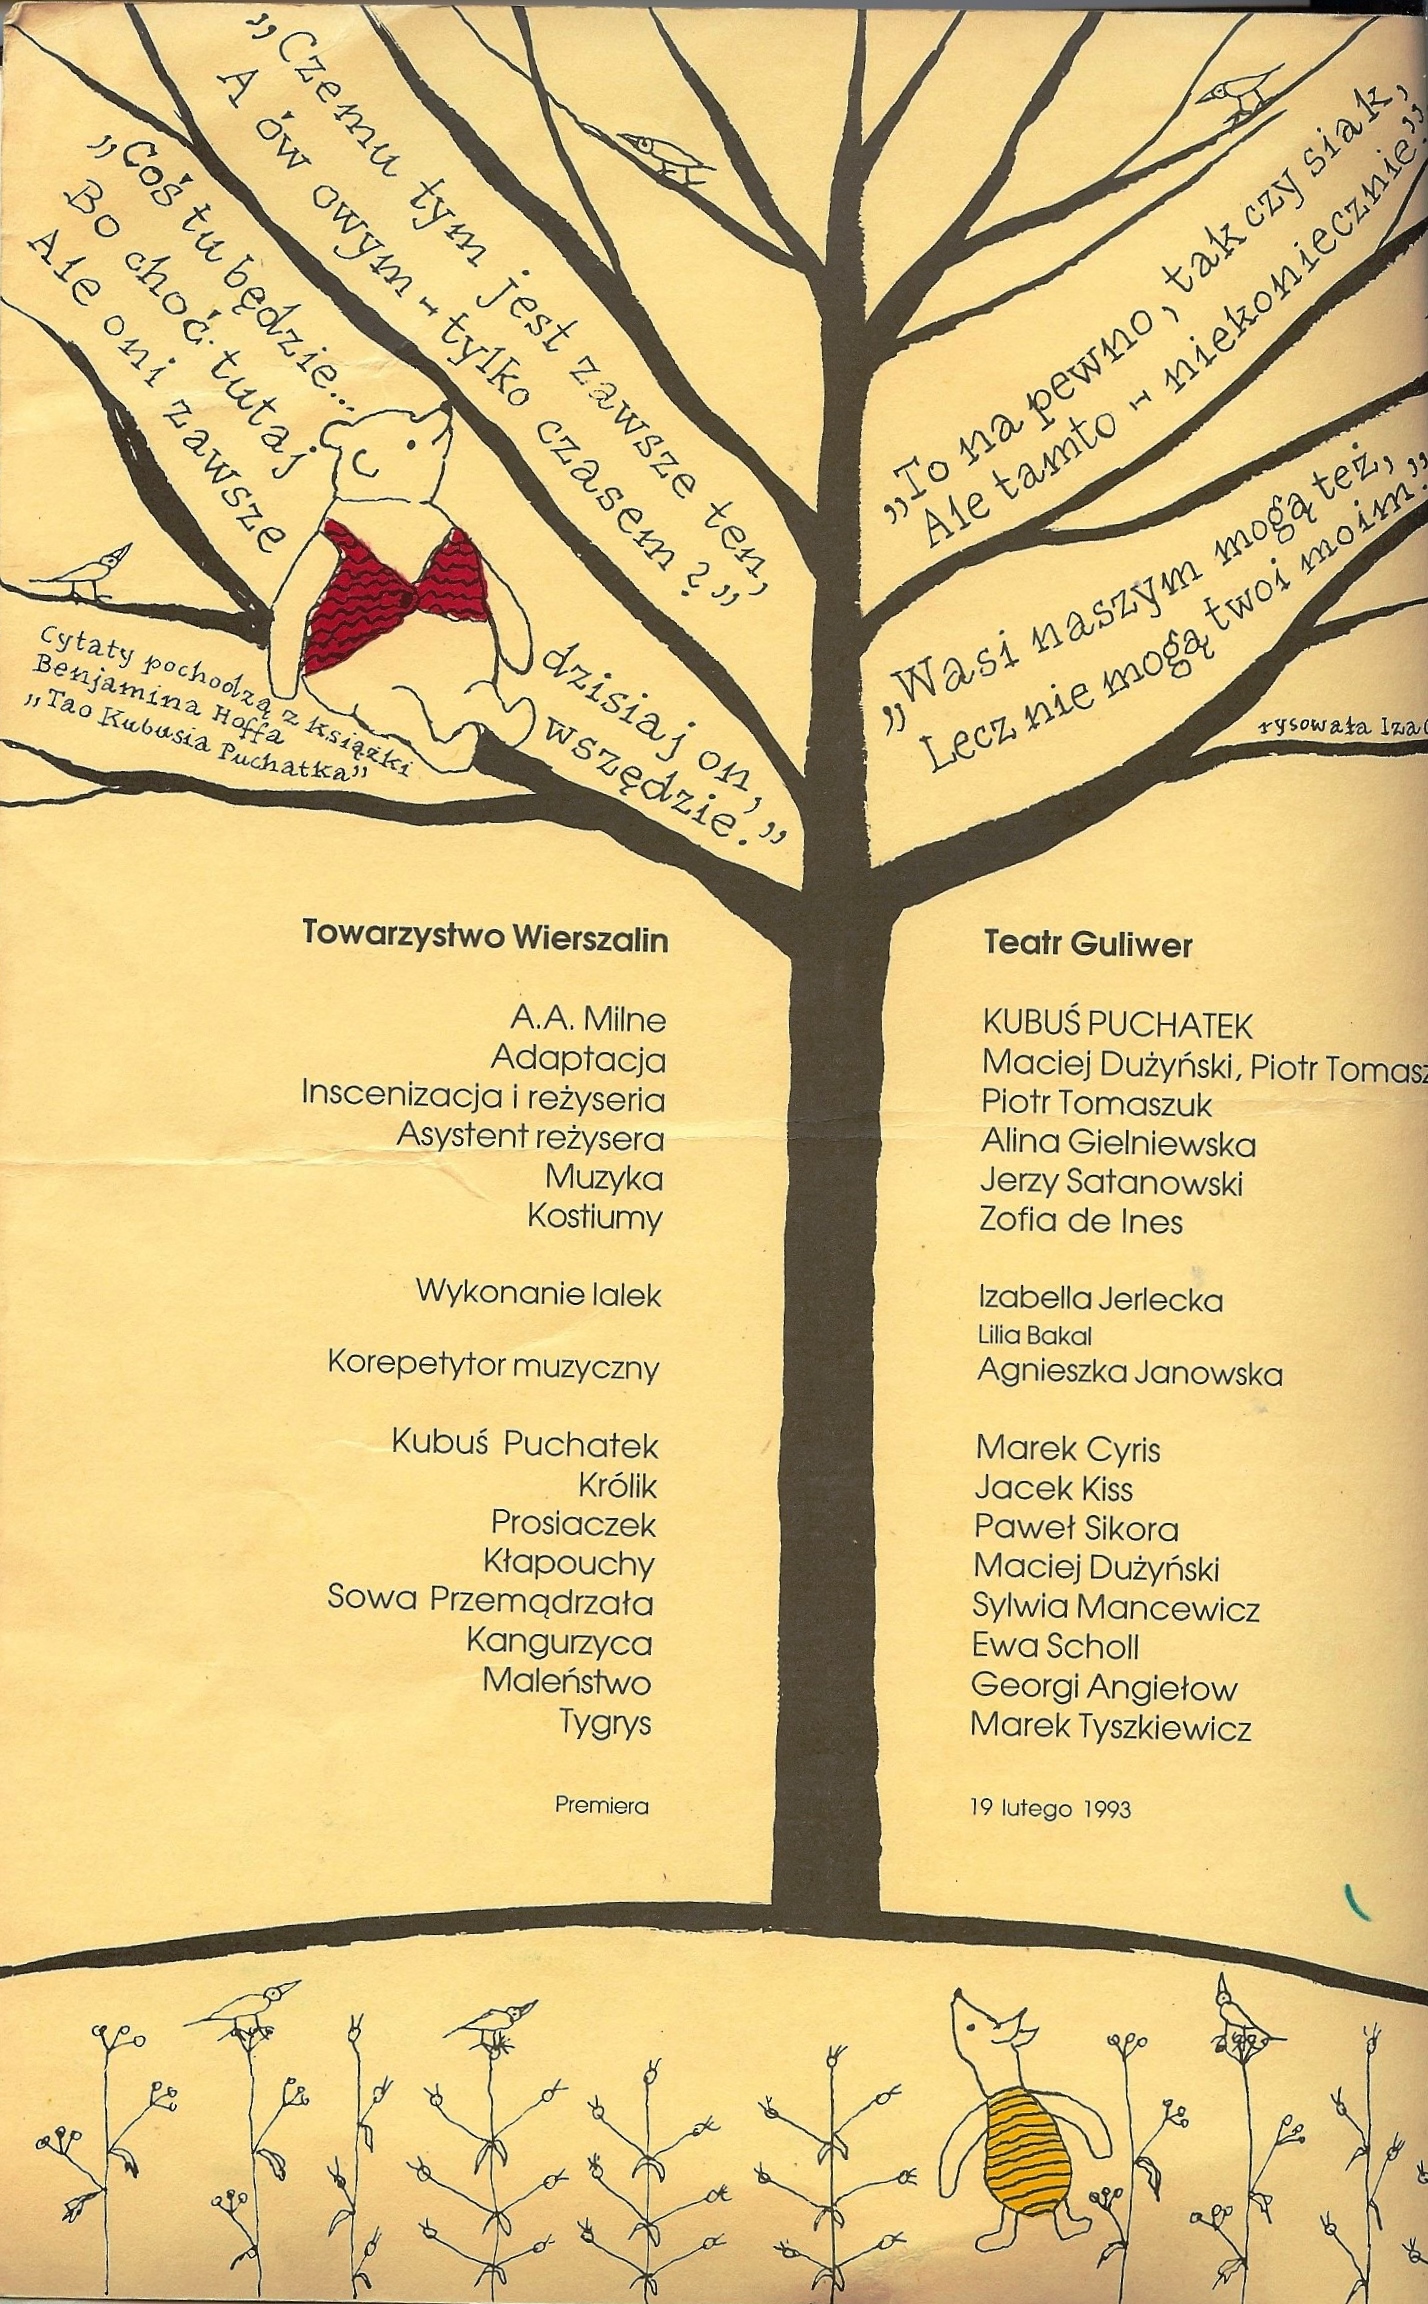 „Czemu tym jest zawsze ten,
A ów owym – tylko czasem?”
„Coś tu będzie...
Bo choć tutaj
Ale oni zawsze
dzisiaj on,
wszędzie.”
Cytaty pochodzą z książki
Benjamina Hoffa
„Tao Kubusia Puchatka”
„To na pewno, tak czy siak,
Ale tamto – niekoniecznie.”
„Wasi naszym mogą też,
Lecz nie mogą twoi moim.”
rysowała Iza
Towarzystwo Wierszalin
Teatr Guliwer
A.A. Milne
KUBUŚ PUCHATEK
Adaptacja
Maciej Dużyński, Piotr Tomasz
Inscenizacja i reżyseria
Piotr Tomaszuk
Asystent reżysera
Alina Gielniewska
Muzyka
Jerzy Satanowski
Kostiumy
Zofia de Ines
Wykonanie lalek
Izabella Jerlecka
Lilia Bakal
Korepetytor muzyczny
Agnieszka Janowska
Kubuś Puchatek
Marek Cyris
Królik
Jacek Kiss
Prosiaczek
Paweł Sikora
Kłapouchy
Maciej Dużyński
Sowa Przemądrzała
Sylwia Mancewicz
Kangurzyca
Ewa Scholl
Maleństwo
Georgi Angiełow
Tygrys
Marek Tyszkiewicz
Premiera
19 lutego 1993